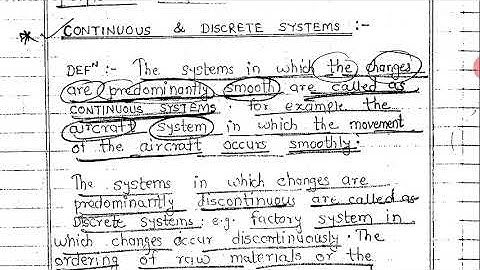 CONTINUOUS & DISCRETE SYSTEMS :-
DEFᴺ :- The systems in which the changes
are predominantly smooth are called as
CONTINUOUS SYSTEMS, for example the
aircraft system in which the movement
of the aircraft occurs smoothly.
The systems in which changes are
predominantly discontinuous are called as
Discrete Systems: e.g. factory system in
which changes occur discontinuously. The
ordering of raw materials or the